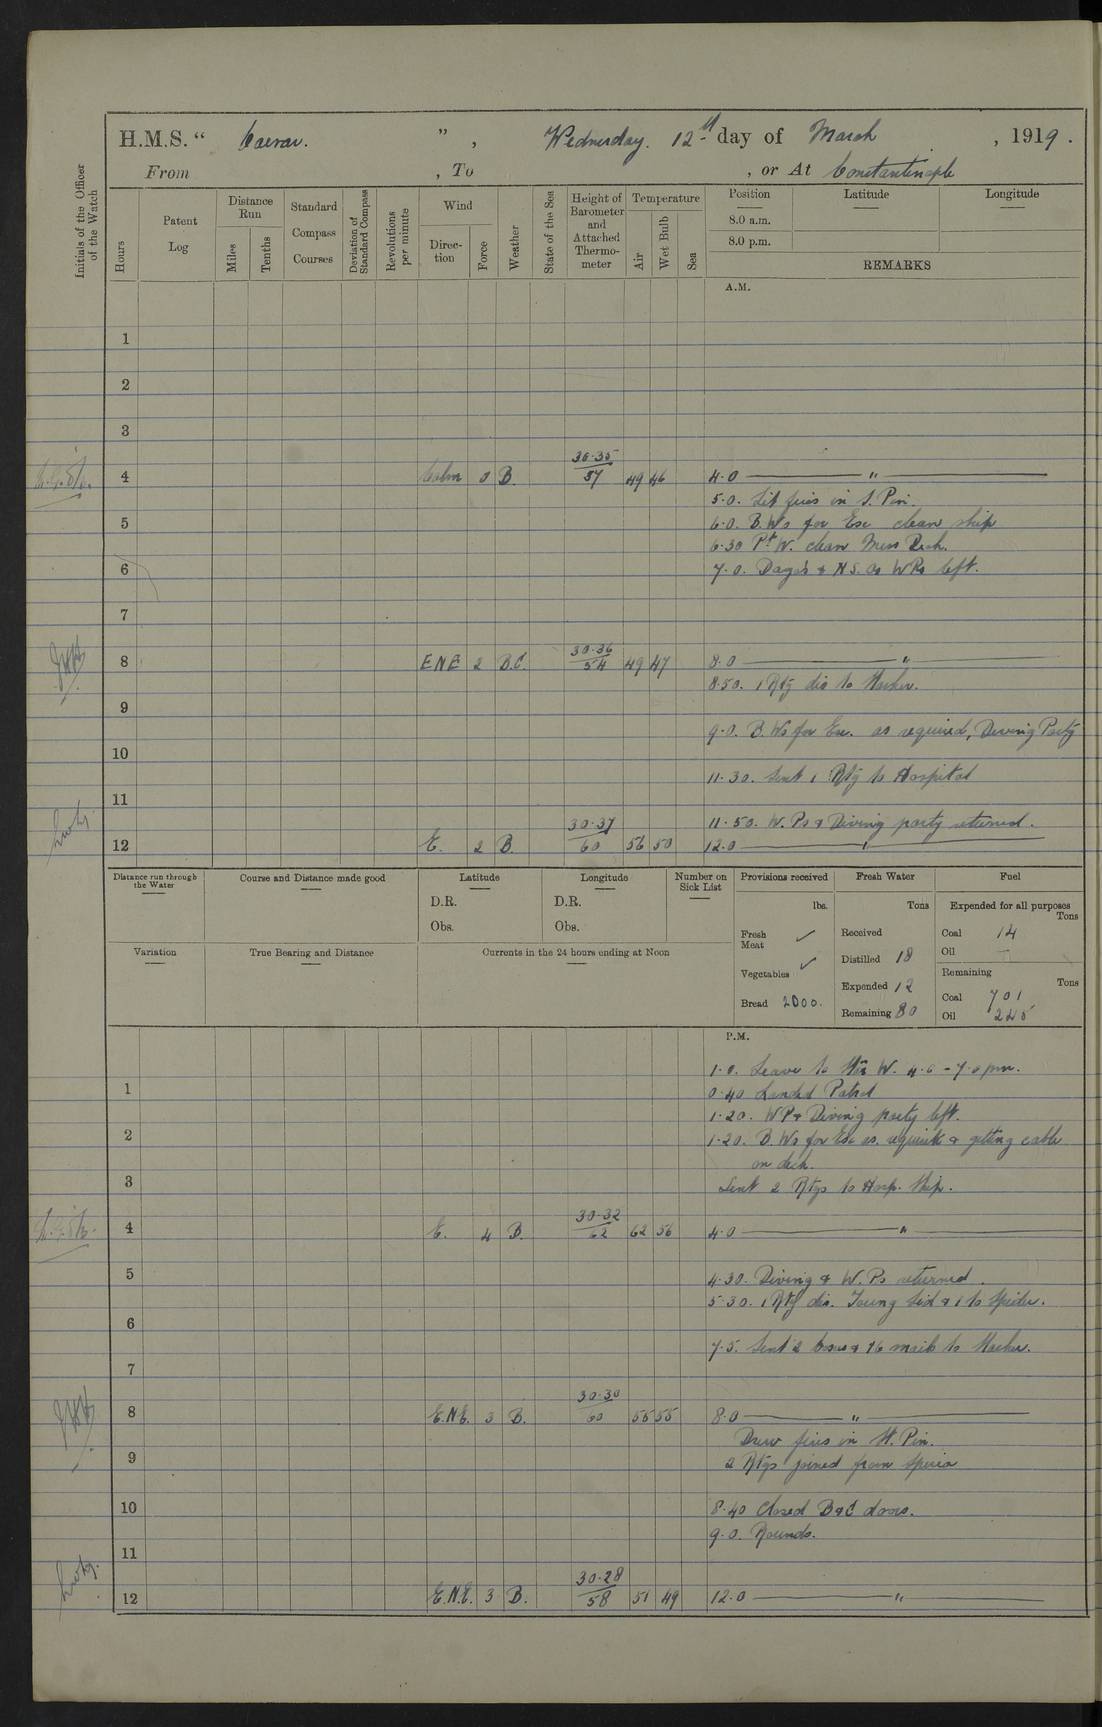 H.M.S. “ Caesar. ”, Wednesday. 12th day of March, 1919.
From , To , or At Constantinople
Initials of the Officer of the Watch
Hours
Patent Log
Distance Run
Miles
Tenths
Standard Compass Courses
Deviation of Standard Compass
Revolutions per minute
Wind
Direc- tion
Force
Weather
State of the Sea
Height of Barometer and Attached Thermo- meter
Temperature
Air
Wet Bulb
Sea
Position
8.0 a.m.
8.0 p.m.
Latitude
Longitude
REMARKS
A.M.
1
2
3
4 Calm 0 B. 30.35 57 49 46 4.0 "
5.0. Lit fires in S. Pin.
5 6.0. B.Ws for Esc clean ship
6.30 Pt W. clean Mess Deck.
6 7.0. Dagos & N.S. as WPs left.
7
8 ENE 2 B.C. 30.36 54 49 47 8.0 "
8.50. 1 Rtg dis to
9
9.0. B.Ws for Esc. as required, Diving Party
10
11.30. Sent 1 Rtg to Hospital
11
11.50. W.Ps & Diving party returned.
12 E. 2 B. 30.37 60 56 50 12.0 "
Distance run through the Water
Course and Distance made good
Latitude
D.R.
Obs.
Longitude
D.R.
Obs.
Number on Sick List
Provisions received
lbs.
Fresh Meat ✓
Vegetables ✓
Bread 2000.
Fresh Water
Tons
Received
Distilled 18
Expended 12
Remaining 80
Fuel
Expended for all purposes
Tons
Coal 14
Oil
Remaining
Tons
Coal 701
Oil 245
Variation
True Bearing and Distance
Currents in the 24 hours ending at Noon
P.M.
1.0. Leave to W. 4.0 - 7.0 pm.
1 0.40 Landed Patrol
1.20. WP & Diving party left.
2 1.20. B.Ws for Esc as. requisite & getting cable
on deck.
3 Sent 2 Rtgs to Hosp. Ship.
4 E. 4 B. 30.32 62 62 56 4.0 "
5 4.30. Diving & W.Ps returned.
5.30. 1 Rtg dis. Young & 1 to Spider.
6
7.5. Sent 2 & 16 mails to
7
8 E.N.E. 3 B. 30.30 60 55 55 8.0 "
Drew fires in St. Pin.
9 2 Rtgs joined from
10 8.40 Closed B&C doors.
9.0. Rounds.
11
12 E.N.E. 3 B. 30.28 58 51 49 12.0 "